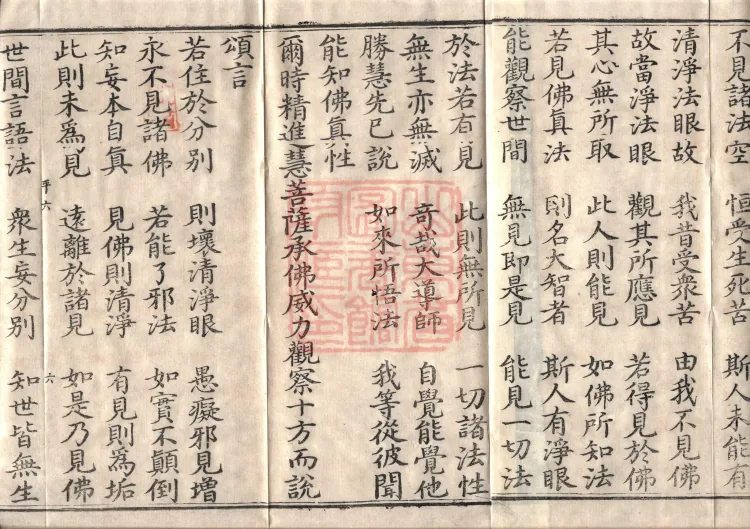 不見諸法空 恒受生死苦 斯人未能有
清淨法眼故 我昔受衆苦 由我不見佛
故當淨法眼 觀其所應見 若得見於佛
其心無所取 此人則能見 如佛所知法
若見佛真法 則名大智者 斯人有淨眼
能觀察世間 無見即是見 能見一切法
於法若有見 此則無所見 一切諸法性
無生亦無滅 奇哉大導師 自覺能覺他
勝慧先已說 如來所悟法 我等從彼聞
能知佛真性
爾時精進慧菩薩承佛威力觀察十方而說
頌言
若住於分別 則壞清淨眼 愚癡邪見增
永不見諸佛 若能了邪法 如實不顛倒
知妄本自真 見佛則清淨 有見則為垢
此則未為見 遠離於諸見 如是乃見佛
世間言語法 衆生妄分別 知世皆無生